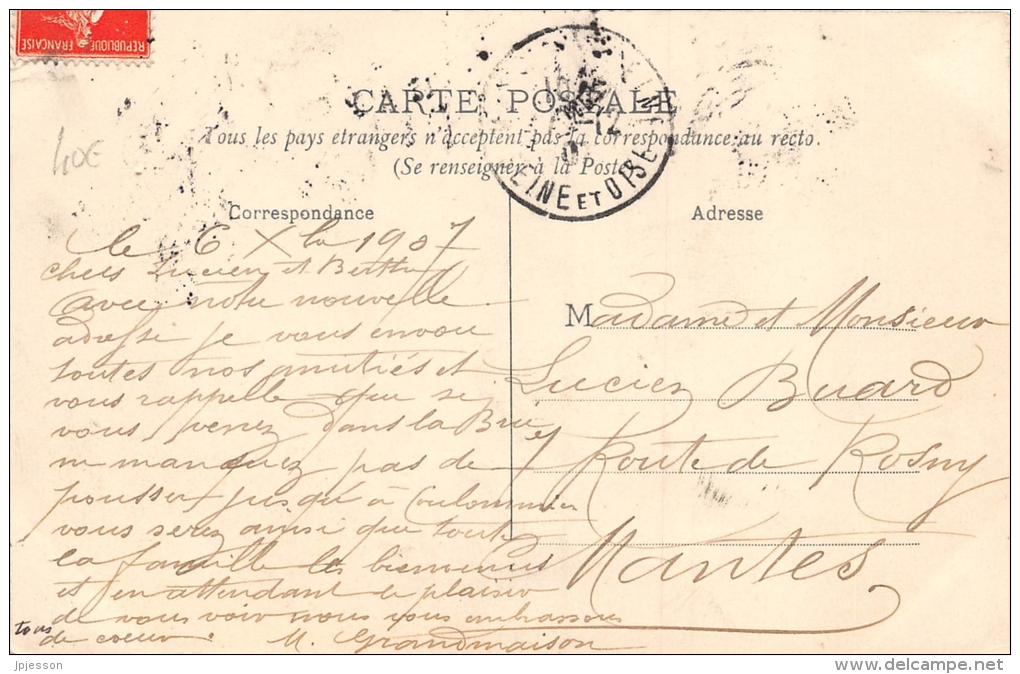 REPUBLIQUE FRANÇAISE
40€
CARTE POSTALE
Tous les pays etrangers n'acceptent pas la correspondance au recto.
(Se renseigner à la Poste)
EINE ET OISE
Correspondance
le 6 Xbre 1907
chers Lucien et Berthe
avec notre nouvelle
adresse je vous envoie
toutes nos amitiés et
vous rappelle que si
vous venez dans la Brie
ne manquez pas de
pousser jusqu'à Coulommiers
vous serez ainsi que toute
la famille les bienvenus
et en attendant le plaisir
de vous voir nous vous embrassons
tous de coeur. M. Grandmaison
Adresse
Madame et Monsieur
Lucien Buard
7 Route de Rosny
Mantes
jpjesson
delcampe.net